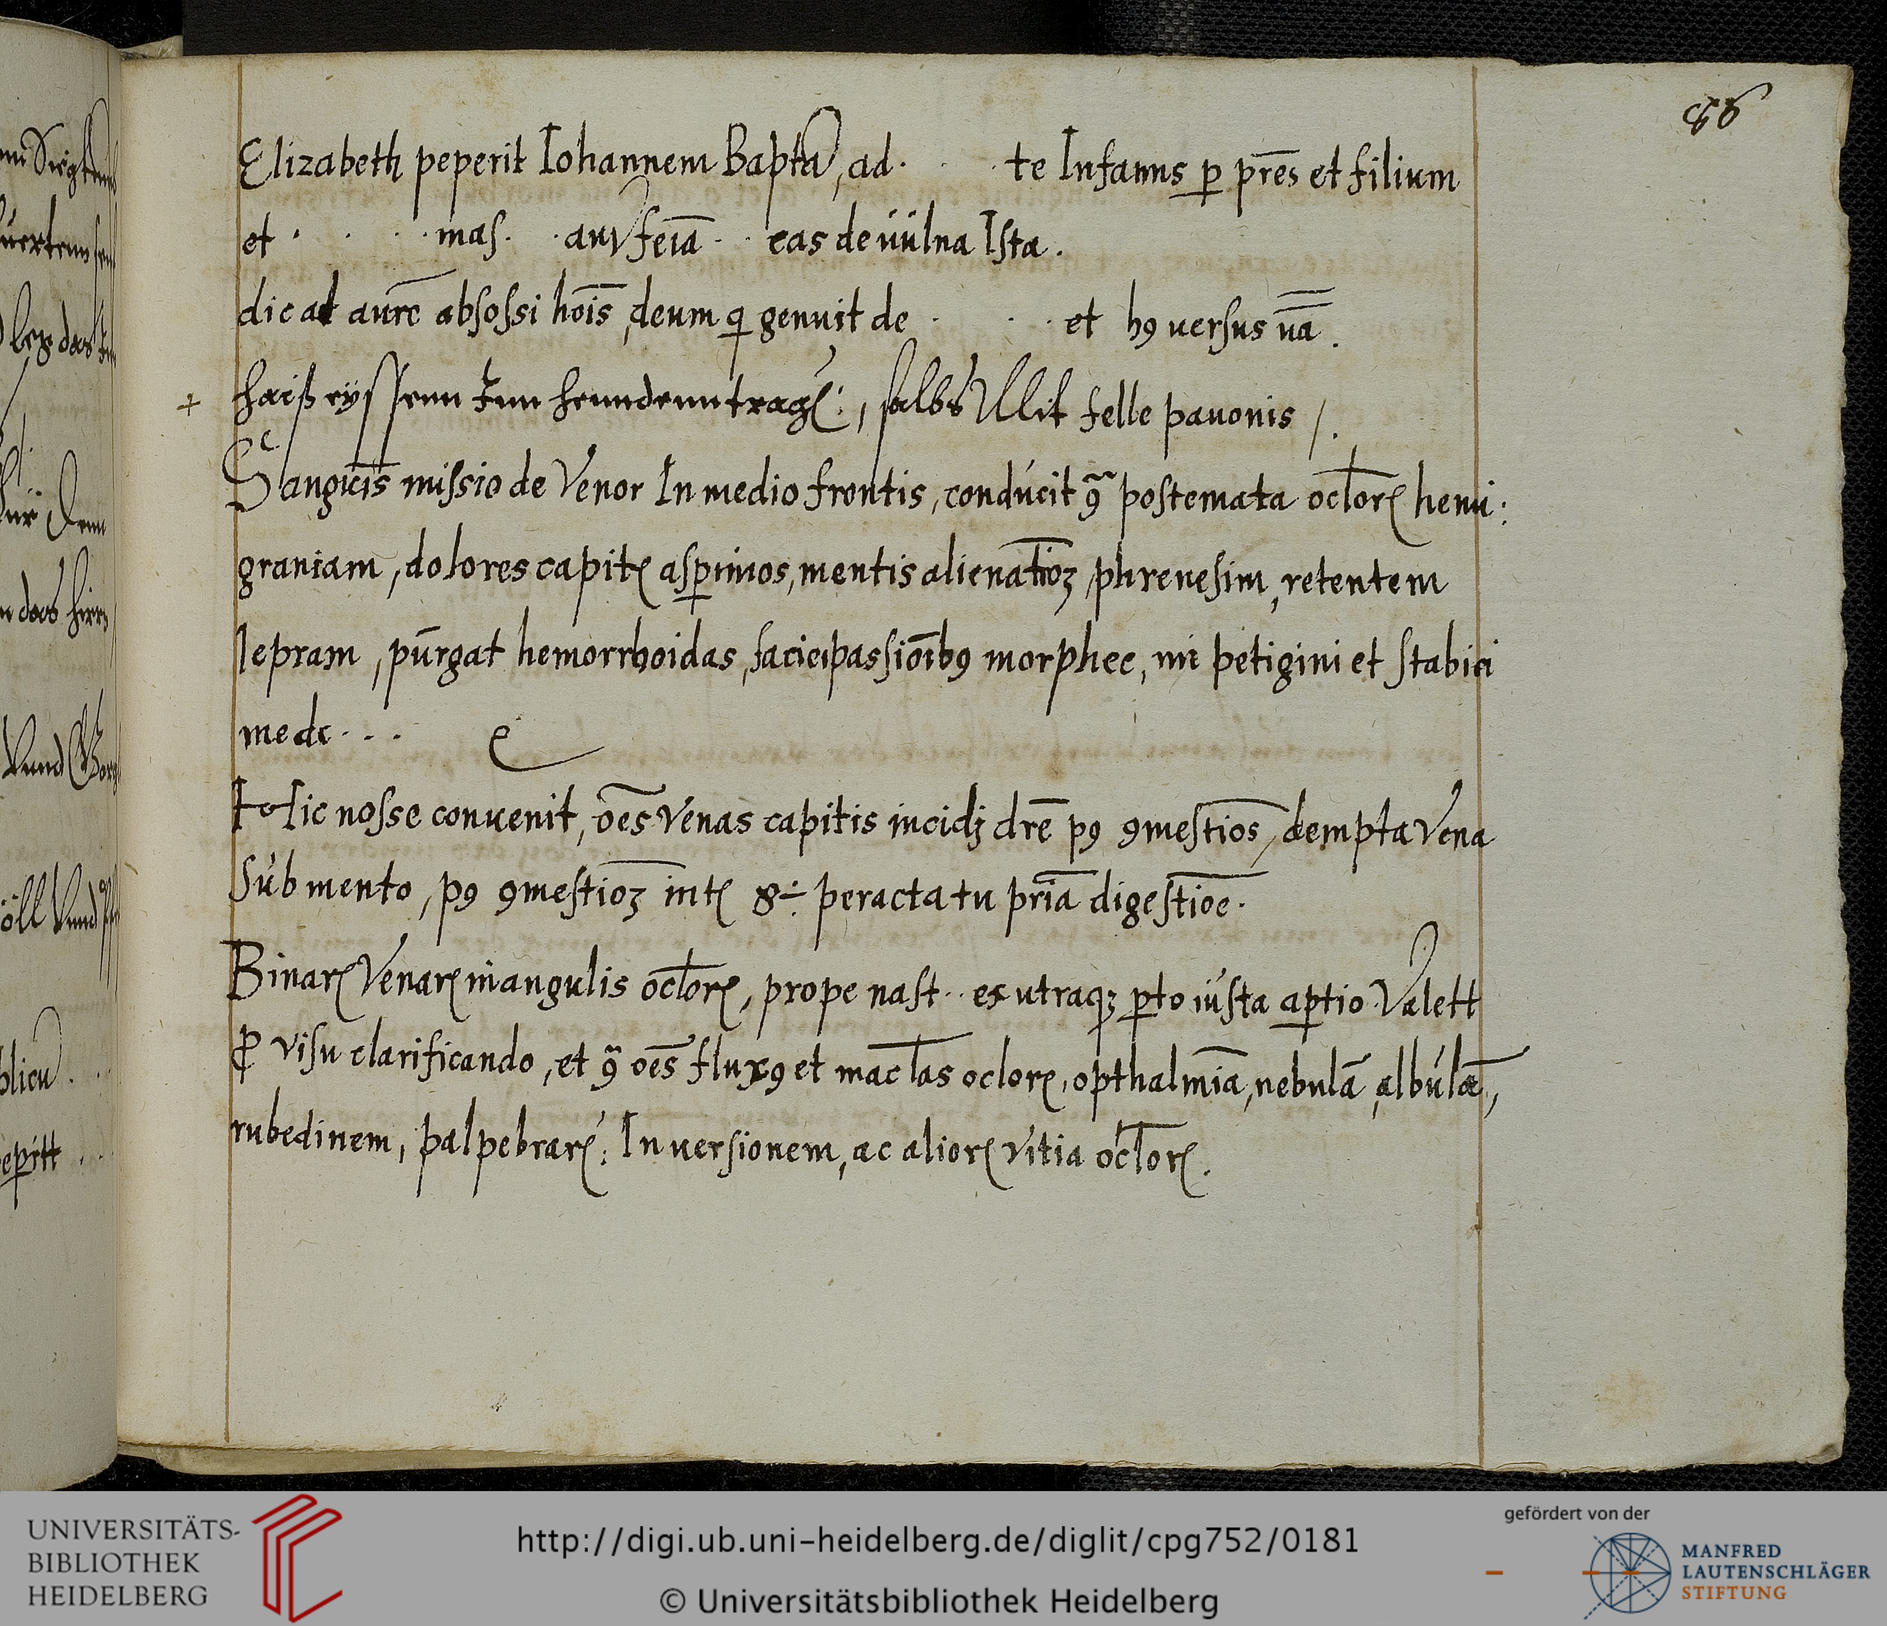 86
Elizabeth peperit Iohannem Bapta, ad. . . te Infanns p pres et filium
et . . . . mas. . . . eas de uulna Ista .
dicat aure absossi hois, deum q genuit de . . . et h9 uersus una .
+ haiß eyssenn Inn henndenn trag: , salbs Mit felle pauonis /.
Sangicis missio de Venor In medio frontis, conducit 9a postemata oclor hemi:
graniam, dolores capit aspimos, mentis alienatioz, phrenesim, retentem
lepram, purgat hemorrhoidas, faciei passioib9 morphee, mi petigini et stabiei
mede . . .
Hic nosse conuenit, oes Venas capitis incidj dre p9 9mestios, dempta Vena
Sub mento, p9 9mestioz int 8÷ peracta tu pria digestioe.
Binar Venar in angulis oclor, prope nast . . ex utraqz pto iusta aptio Valett
P Visu clarificando, et 9a oes flux9 et maclas oclor, opthalmia, nebula, albula,
rubedinem, palpebrar: Inuersionem, ac alior Vitia oclor.
UNIVERSITÄTS-
BIBLIOTHEK
HEIDELBERG
http://digi.ub.uni-heidelberg.de/diglit/cpg752/0181
© Universitätsbibliothek Heidelberg
gefördert von der
MANFRED
LAUTENSCHLÄGER
STIFTUNG